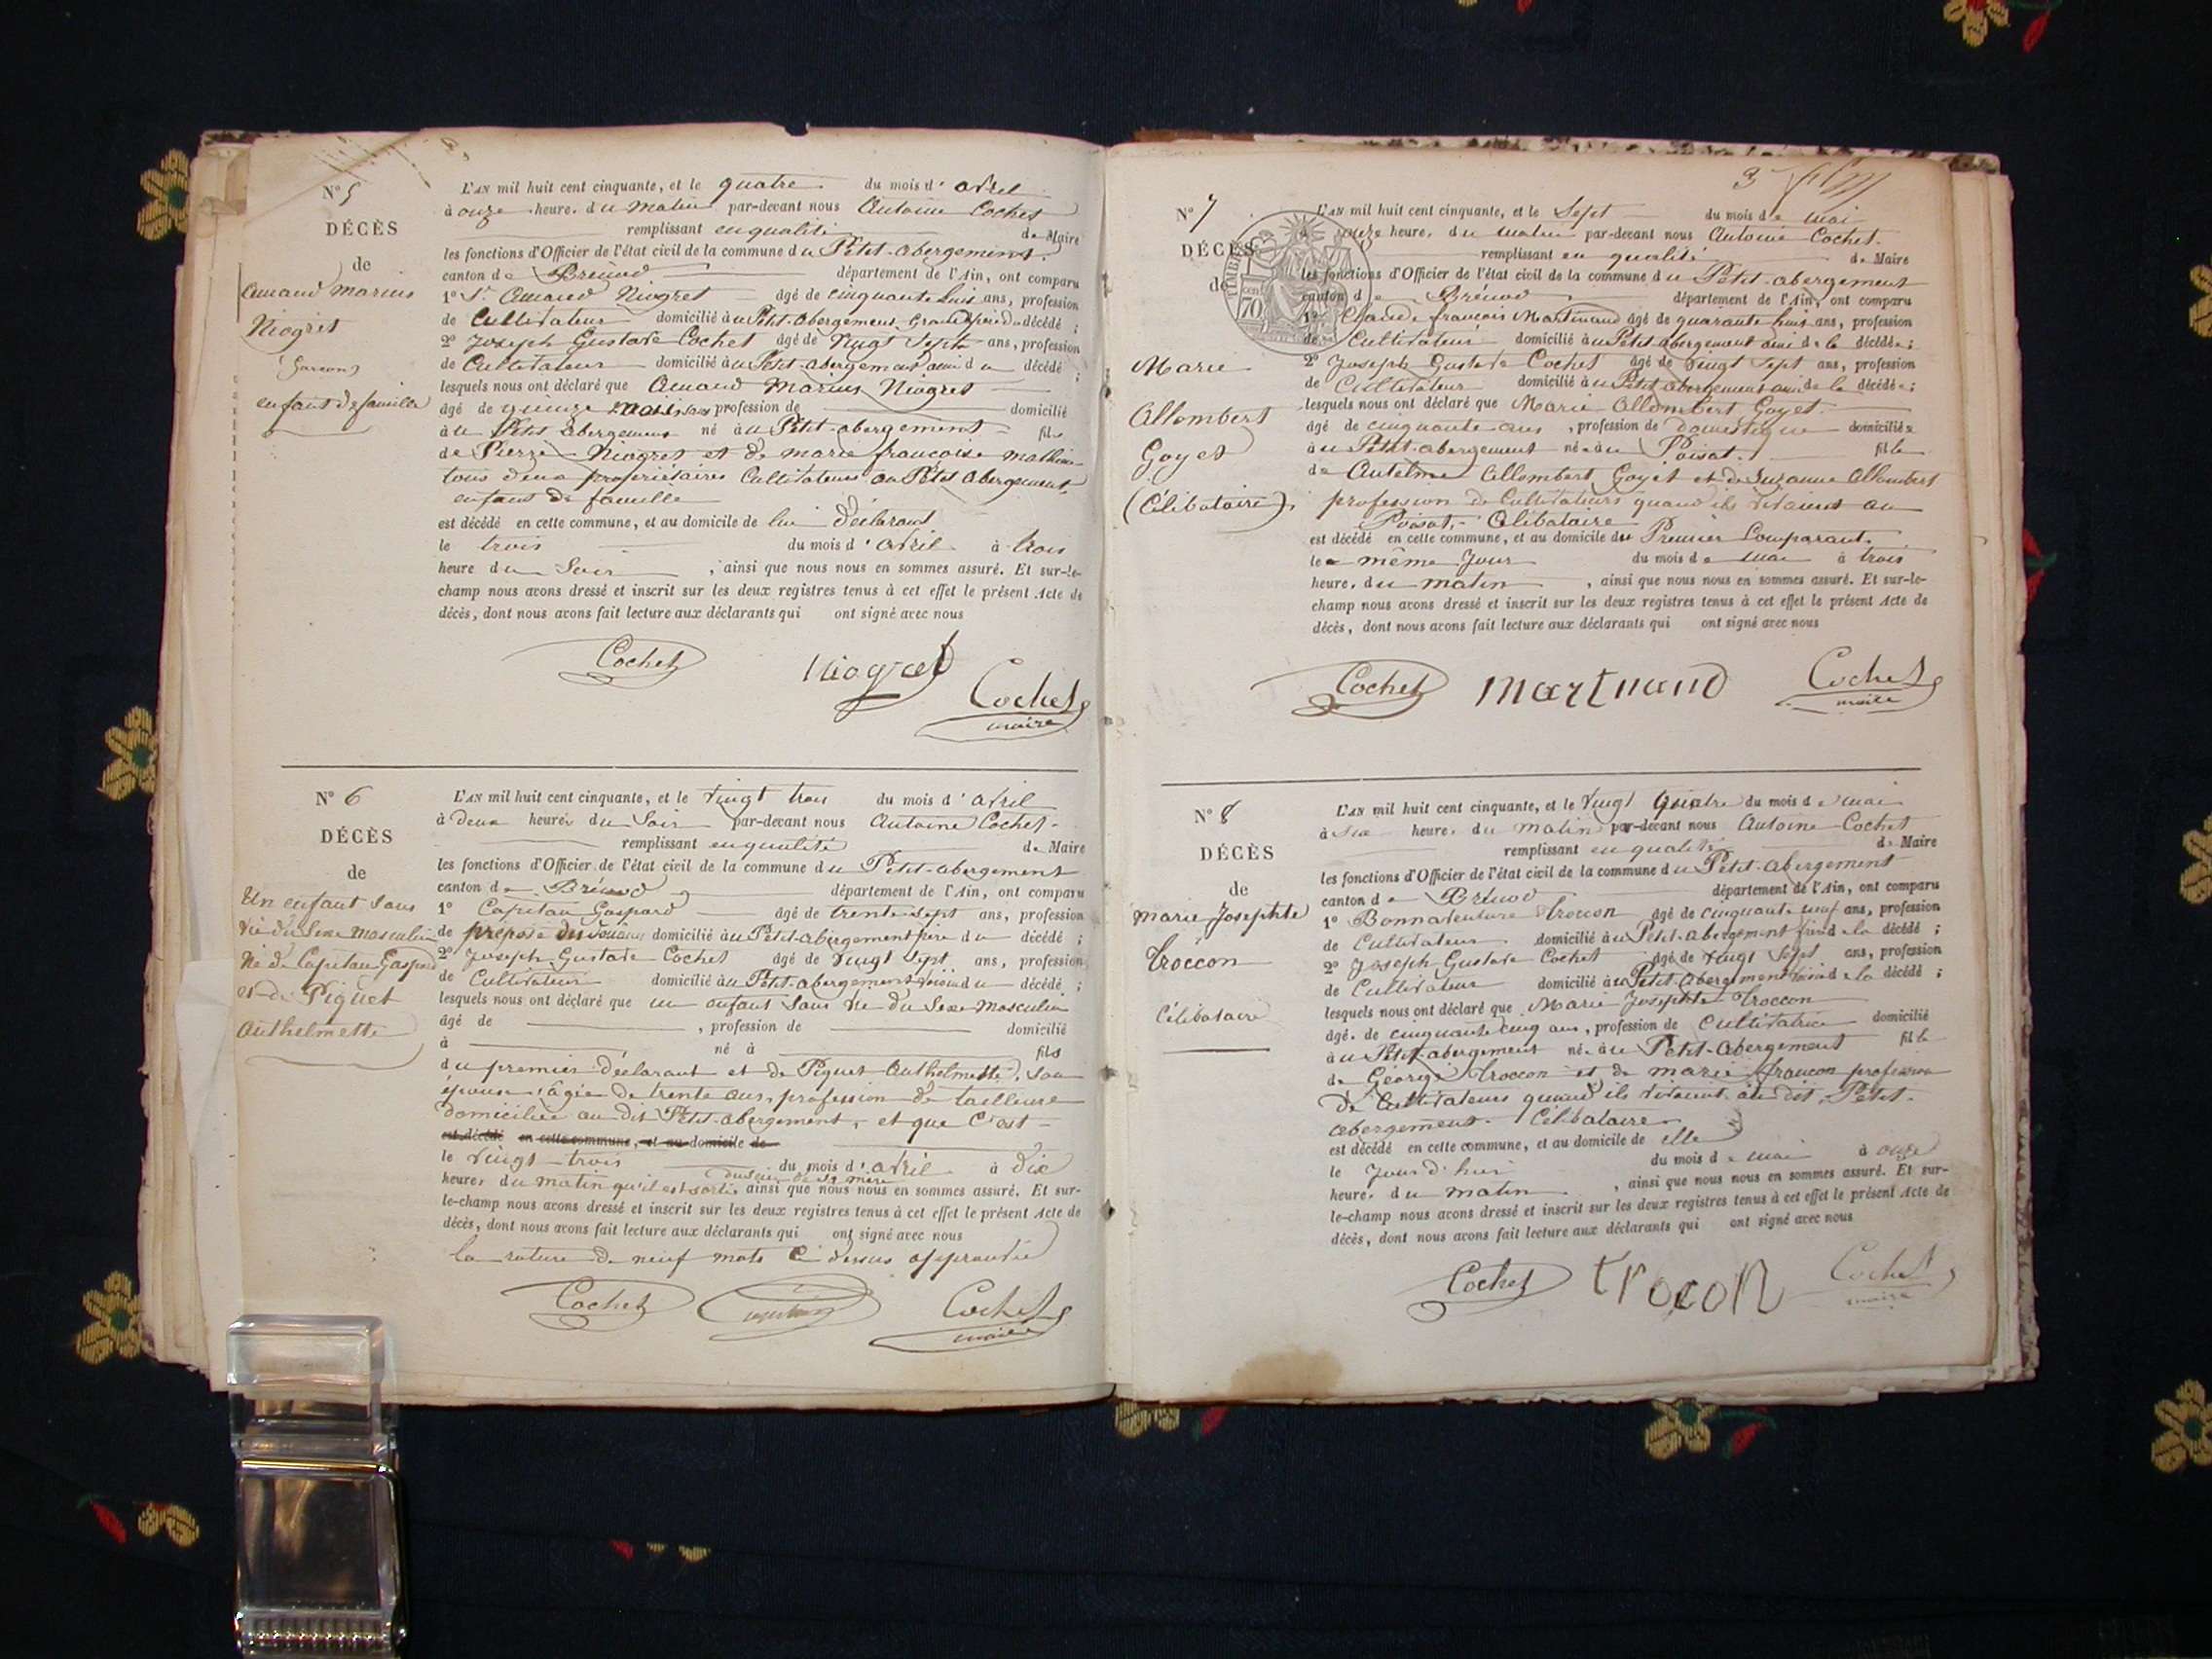 N° 5
DÉCÈS
de
Amand Marius
Niogret
(Garçon)
enfant de famille
L'AN mil huit cent cinquante, et le quatre du mois d'avril
à onze heure. du matin par-devant nous Antoine Cochet
remplissant en qualité de Maire
les fonctions d'Officier de l'état civil de la commune du Petit-abergement
canton de Brénod département de l'Ain, ont comparu
1° Sr. Amand Niogret âgé de cinquante huit ans, profession
de Cultivateur domicilié au Petit-abergement Grand père du décédé ;
2° Joseph Gustave Cochet âgé de Vingt Sept ans, profession
de Cultivateur domicilié au Petit-abergement ami du décédé ;
lesquels nous ont déclaré que Amand Marius Niogret
âgé de quinze mois sans profession de domicilié
au Petit abergement né au Petit-abergement fils
de Pierre Niogret et de marie francoise
tous deux propriétaires Cultivateurs au Petit Abergement,
enfant de famille
est décédé en cette commune, et au domicile de lui déclarant
le trois du mois d'avril à trois
heure du Soir , ainsi que nous nous en sommes assuré. Et sur-le-
champ nous avons dressé et inscrit sur les deux registres tenus à cet effet le présent Acte de
décès, dont nous avons fait lecture aux déclarants qui ont signé avec nous
Cochet niogret Cochet
maire
N° 6
DÉCÈS
de
Un enfant Sans
Vie du Sexe Masculin
Né de Capitan Gaspard
et de Piquet
Authelmette
L'AN mil huit cent cinquante, et le Vingt trois du mois d'avril
à deux heures du Soir par-devant nous Antoine Cochet
remplissant en qualité de Maire
les fonctions d'Officier de l'état civil de la commune du Petit-abergement
canton de Brénod département de l'Ain, ont comparu
1° Capitan Gaspard âgé de trente-sept ans, profession
de préposé des douanes domicilié au Petit-abergement père du décédé ;
2° Joseph Gustave Cochet âgé de Vingt Sept ans, profession
de Cultivateur domicilié au Petit-abergement voisin du décédé ;
lesquels nous ont déclaré que un enfant Sans Vie du Sexe Masculin
âgé de , profession de domicilié
à né à fils
du premier déclarant et de Piquet Authelmette, Son
épouse, âgée de trente ans, profession de tailleuse
domiciliée au dit Petit-abergement, et que C'est
est décédé en cette commune, et au domicile de
le Vingt-trois du mois d'avril à Dix
du Sein de Sa mère
heures du matin qu'il est sorti ainsi que nous nous en sommes assuré. Et sur-
le-champ nous avons dressé et inscrit sur les deux registres tenus à cet effet le présent Acte de
décès, dont nous avons fait lecture aux déclarants qui ont signé avec nous
la rature de neuf mots Ci dessus approuvée
Cochet Cochet
maire
3
N° 7
DÉCÈS
de
TIMBRE
70 cent
Marie
Allombert
Goyet
(Célibataire)
L'AN mil huit cent cinquante, et le Sept du mois de mai
à onze heure. du matin par-devant nous Antoine Cochet
remplissant en qualité de Maire
les fonctions d'Officier de l'état civil de la commune du Petit abergement
canton de Brénod département de l'Ain, ont comparu
1° Claude francois Martinand âgé de quarante huit ans, profession
de Cultivateur domicilié au Petit-abergement ami de la décédée ;
2° Joseph Gustave Cochet âgé de Vingt Sept ans, profession
de Cultivateur domicilié au Petit abergement ami de la décédée ;
lesquels nous ont déclaré que Marie Allombert Goyet
âgé de cinquante ans , profession de domestique domiciliée
au Petit-abergement née au Poisat. fille
de Antelme Allombert Goyet et de Suzanne Allombert
profession de Cultivateurs quand ils vivaient au
Poisat, - Célibataire
est décédé en cette commune, et au domicile du Premier Comparant
le même Jour du mois de mai à trois
heure. du matin , ainsi que nous nous en sommes assuré. Et sur-le-
champ nous avons dressé et inscrit sur les deux registres tenus à cet effet le présent Acte de
décès, dont nous avons fait lecture aux déclarants qui ont signé avec nous
Cochet martinand Cochet
maire
N° 8
DÉCÈS
de
Marie Josephte
Troccon
Célibataire
L'AN mil huit cent cinquante, et le Vingt Quatre du mois de mai
à Six heure. du matin par-devant nous Antoine Cochet
remplissant en qualité de Maire
les fonctions d'Officier de l'état civil de la commune du Petit-abergement
canton de Brénod département de l'Ain, ont comparu
1° Bonnaventure Troccon âgé de cinquante neuf ans, profession
de Cultivateur domicilié au Petit-abergement de la décédé ;
2° Joseph Gustave Cochet âgé de Vingt Sept ans, profession
de Cultivateur domicilié au Petit-abergement voisin de la décédé ;
lesquels nous ont déclaré que Marie Josephte Troccon
âgé. de cinquante cinq ans , profession de Cultivatrice domicilié
au Petit-abergement née au Petit-abergement fille
de George Troccon et de marie francon profession
de Cultivateurs quand ils vivaient au dit Petit-
abergement. Célibataire
est décédé en cette commune, et au domicile de elle
le Jour d'hui du mois de mai à onze
heure. du matin , ainsi que nous nous en sommes assuré. Et sur-
le-champ nous avons dressé et inscrit sur les deux registres tenus à cet effet le présent Acte de
décès, dont nous avons fait lecture aux déclarants qui ont signé avec nous
Cochet trocon Cochet
maire